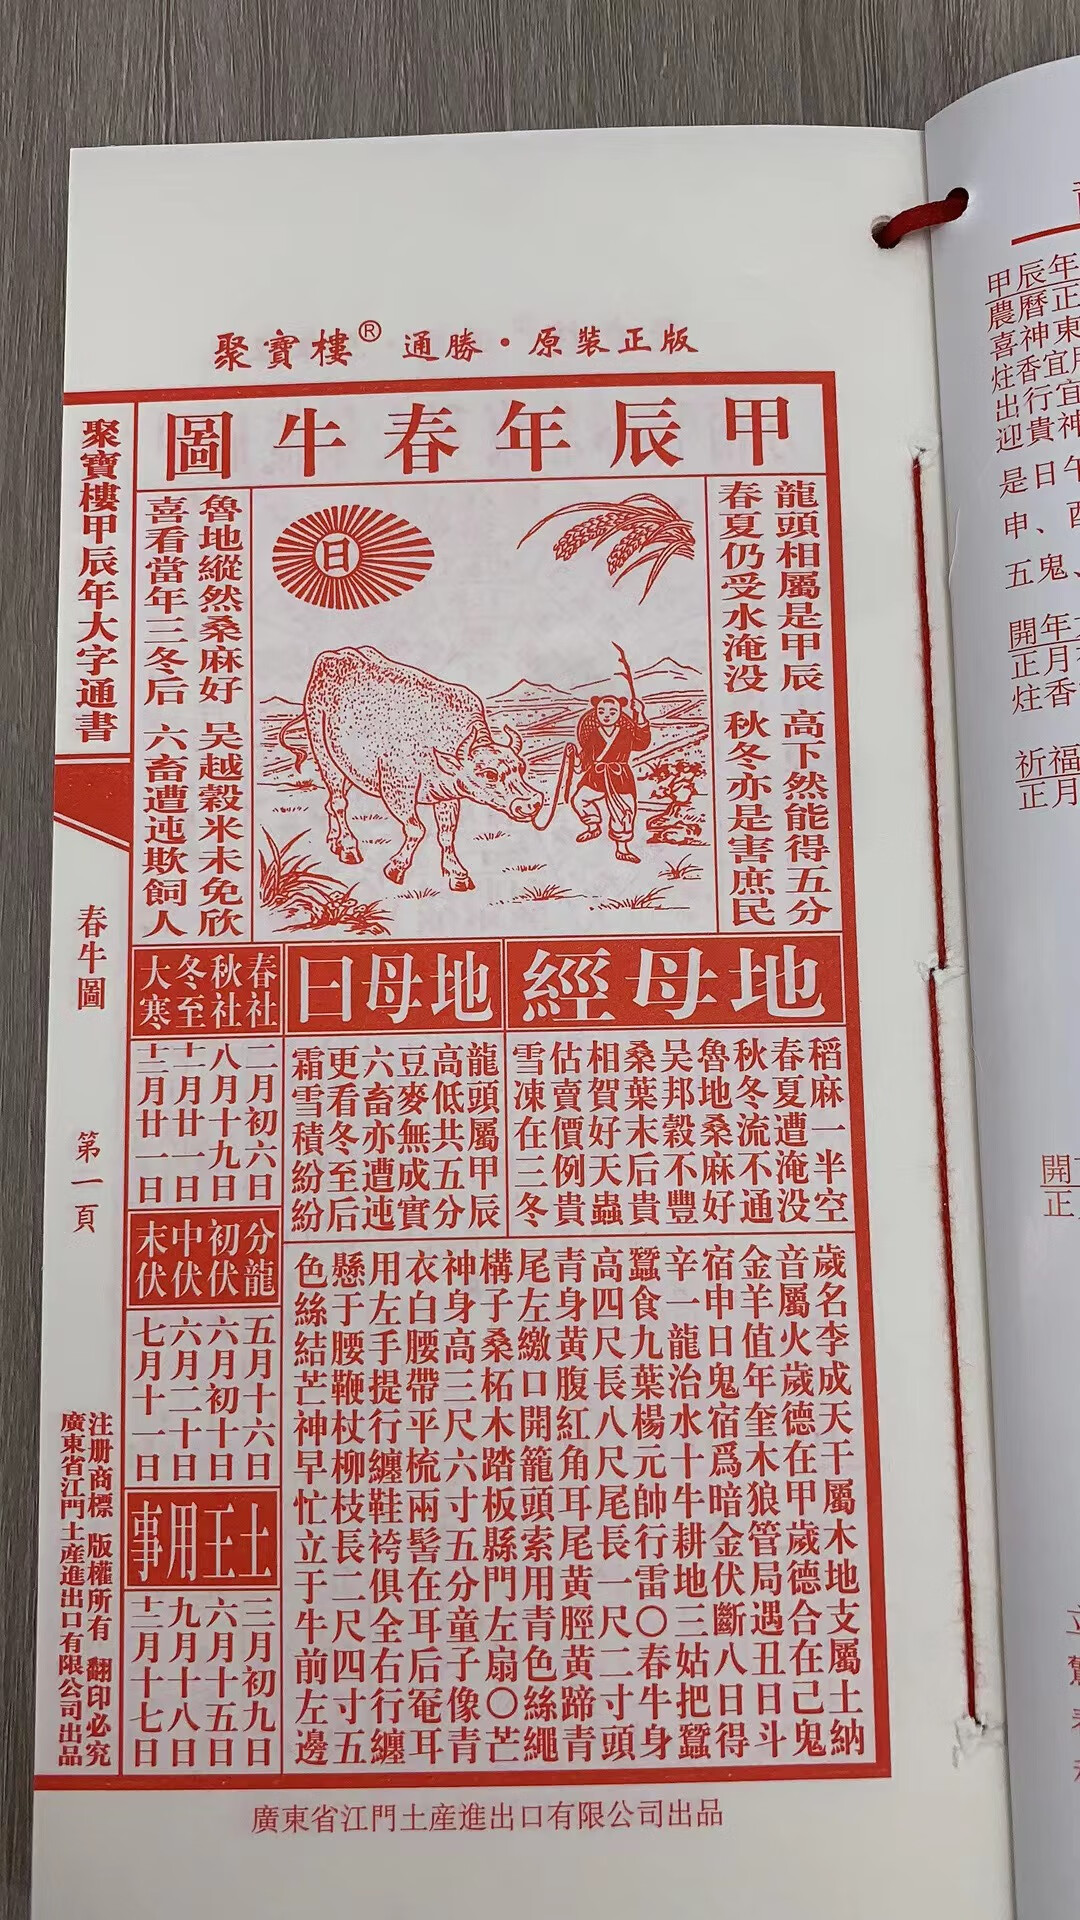 聚寶樓® 通勝·原裝正版
甲辰年春牛圖
龍頭相屬是甲辰 高下然能得五分
春夏仍受水淹没 秋冬亦是害庶民
日
魯地縱然桑麻好 吴越穀米未免欣
喜看當年三冬后 六畜遭迍欺飼人
地母經
稻麻一半空
春夏遭淹没
秋冬流不通
魯地桑麻好
吴邦穀不豐
桑葉末后貴
相賀好天蟲
估賣價例貴
雪凍在三冬
地母曰
龍頭屬甲辰
高低共五分
豆麥無成實
六畜亦遭迍
更看冬至后
霜雪積紛紛
春社
秋社
冬至
大寒
二月初六日
八月十九日
十一月廿一日
十二月廿一日
分龍
初伏
中伏
末伏
五月十六日
六月初十日
六月二十日
七月十一日
土王用事
三月初九日
六月十五日
九月十八日
十二月十七日
歲名李成天干屬木地支屬土納
音屬火歲德在甲歲德合在己鬼
金羊值年奎木狼管局遇丑日斗
宿申日鬼宿爲暗金伏斷八日得
辛一龍治水十牛耕地三姑把蠶
蠶食九葉楊元帥行雷○春牛身
高四尺長八尺尾長一尺二寸頭
青身黄腹紅角耳尾黄脛黄蹄青
尾左繳口開籠頭索用青色絲繩
構子桑柘木踏板縣門左扇○芒
神身高三尺六寸五分童子像青
衣白腰帶平梳兩髻在耳后罨耳
用左手提行纏鞋袴俱全右行纏
懸于腰鞭杖柳枝長二尺四寸五
色絲結芒神早忙立于牛前左邊
聚寶樓甲辰年大字通書
春牛圖
第一頁
注册商標 版權所有 翻印必究
廣東省江門土産進出口有限公司出品
廣東省江門土産進出口有限公司出品
甲辰年
農曆正
喜神東
炷香宜
出行宜
迎貴神
是日午
申、酉
五鬼、
開年
正月
炷香
祈福
正月
開
正